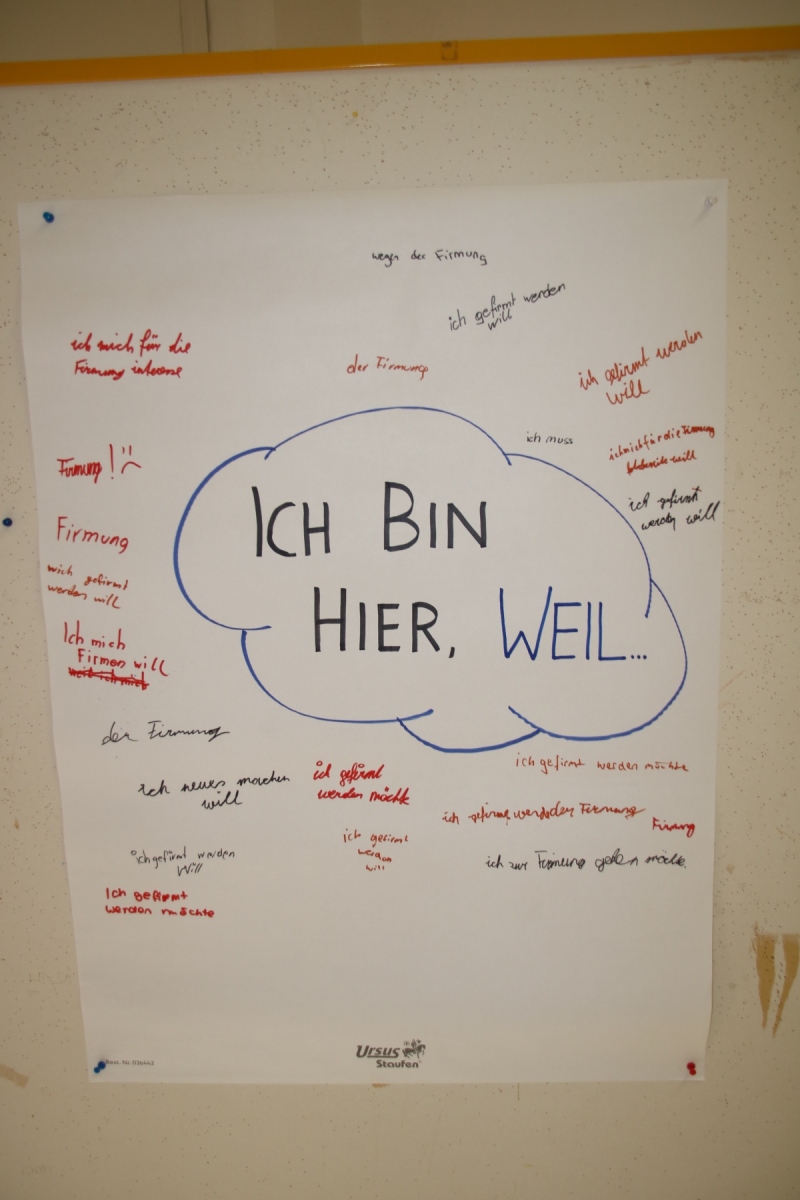 wegen der Firmung
ich gefirmt werden
will
ich mich für die
Firmung interesse
der Firmung
ich gefirmt werden
will
ich muss
ich mich für die Firmung
will
Firmung !
ich gefirmt
werden will
ICH BIN
HIER, WEIL...
Firmung
mich gefirmt
werden will
Ich mich
Firmen will
weil ich mich
der Firmung
ich gefirmt werden möchte
ich neues machen
will
ich gefirmt
werden möchte
ich der Firmung
Firmung
ich gefirmt
werden
will
ich gefirmt werden
will
ich zur Firmung gehen möchte
Ich gefirmt
werden möchte
Ursus
Staufen
Best. Nr.